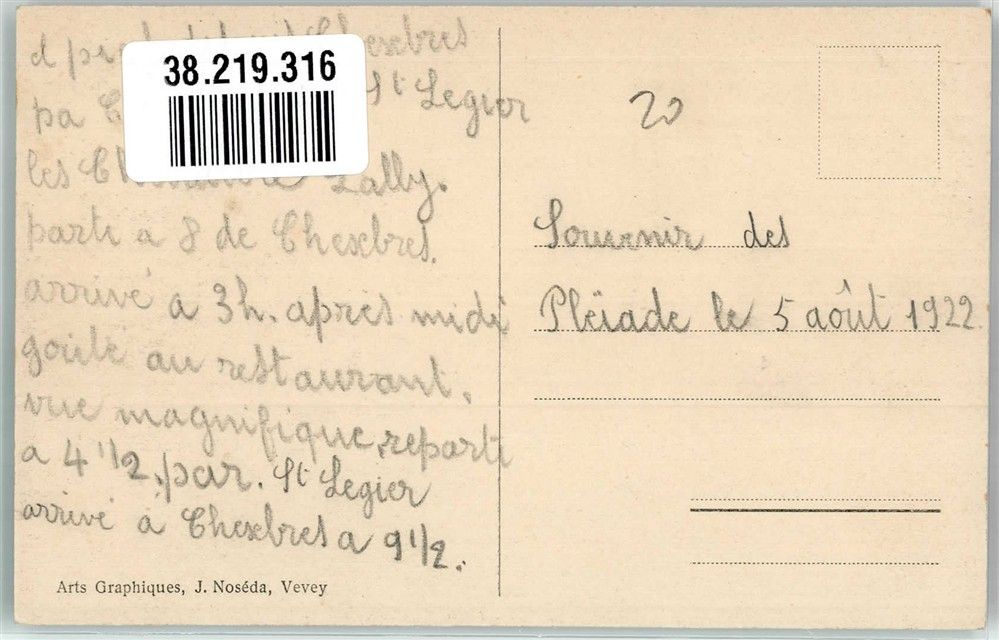 38.219.316
Chexbres
pa
St Legier
les
Lally.
parti a 8 de Chexbres.
arrivé a 3h. après midi
goûté au restaurant.
vue magnifique, reparti
a 4 1/2. par. St Legier
arrivé à Chexbres a 9 1/2.
Arts Graphiques, J. Noséda, Vevey
20
Souvenir des
Pléiade le 5 août 1922.